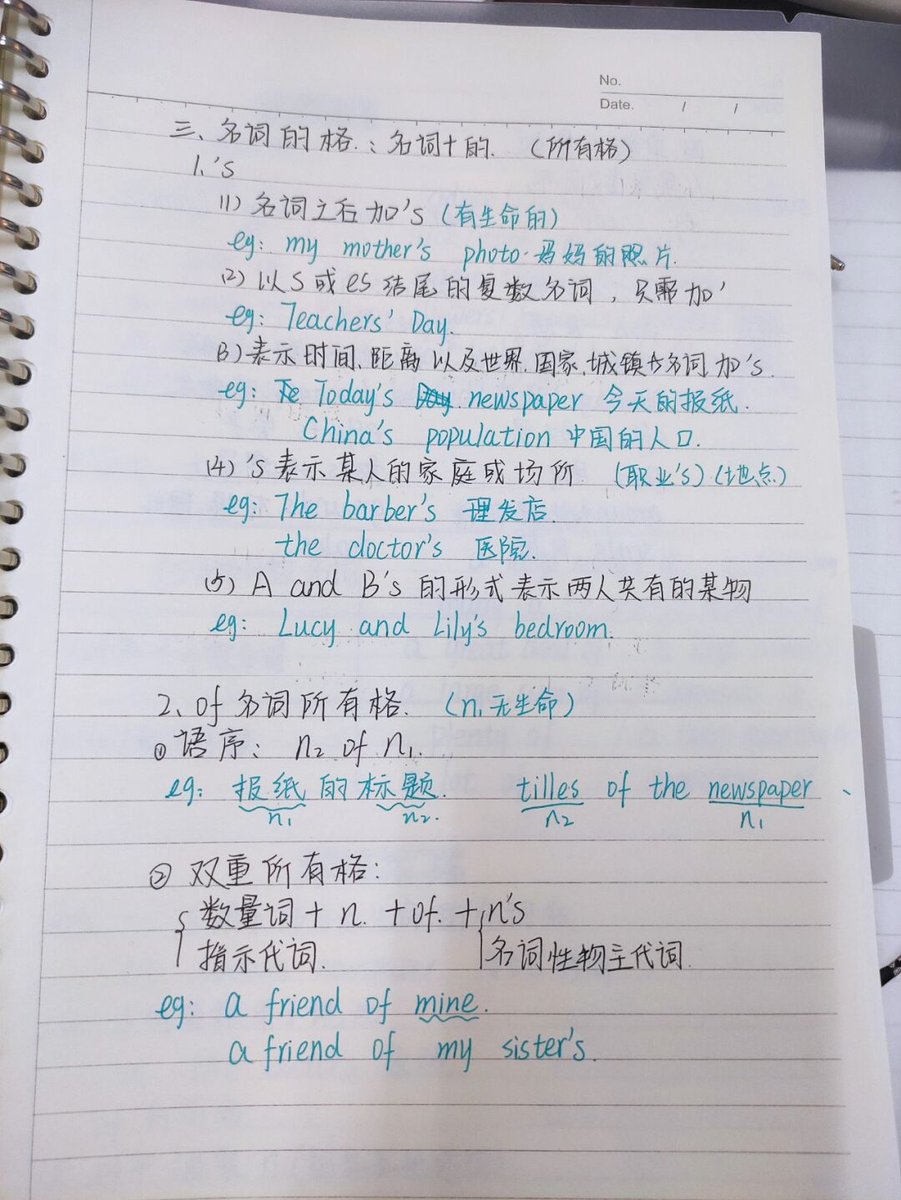 No.
Date. / /
三、名词的格.：名词+的.（所有格）
1、's
(1) 名词之后加's（有生命的）
eg: my mother's photo·妈妈的照片.
(2) 以s或es结尾的复数名词，只需加'
eg: Teachers' Day.
(3) 表示时间、距离以及世界、国家、城镇的名词加's.
eg: Today's newspaper 今天的报纸.
China's population 中国的人口.
(4) 's表示某人的家庭或场所 （职业's）（地点）
eg: The barber's 理发店.
the doctor's 医院.
(5) A and B's 的形式表示两人共有的某物
eg: Lucy and Lily's bedroom.
2、of名词所有格.（n.无生命）
① 语序: n2 of n1.
eg: 报纸的标题. tilles of the newspaper
n1 n2 n2 n1
② 双重所有格:
数量词 + n. + of. + n's
指示代词. 名词性物主代词.
eg: a friend of mine.
a friend of my sister's.